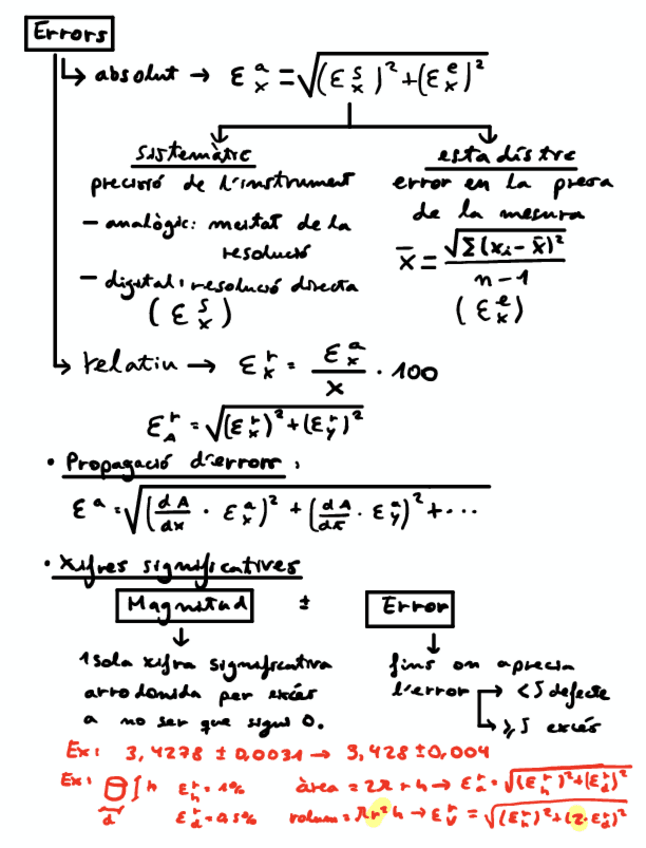 Errors
absolut → ε^a_x = √((ε^s_x)² + (ε^e_x)²)
sistemàtic
precisió de l'instrument
– analògic: meitat de la
resolució
– digital: resolució directa
(ε^s_x)
estadístic
error en la presa
de la mesura
x̄ = √(Σ(xᵢ - x̄)²) / (n-1)
(ε^e_x)
relatiu → ε^r_x = ε^a_x / x · 100
ε^r_A = √((ε^r_x)² + (ε^r_y)²)
• Propagació d'errors:
ε^a = √((dA/dx · ε^a_x)² + (dA/dπ · ε^a_y)² + ...
• Xifres significatives
Magnitud ± Error
1 sola xifra significativa
arrodonida per excés
a no ser que sigui 0.
fins on aprecia
l'error → <5 defecte
→ ≥5 excés
Ex: 3,4278 ± 0,0031 → 3,428 ± 0,004
Ex: h ε^r_h = 1% àrea = 2π r h → ε^r_a = √((ε^r_h)² + (ε^r_d)²)
d ε^r_d = 0,5% volum = π r² h → ε^r_V = √((ε^r_h)² + (2·ε^r_d)²)